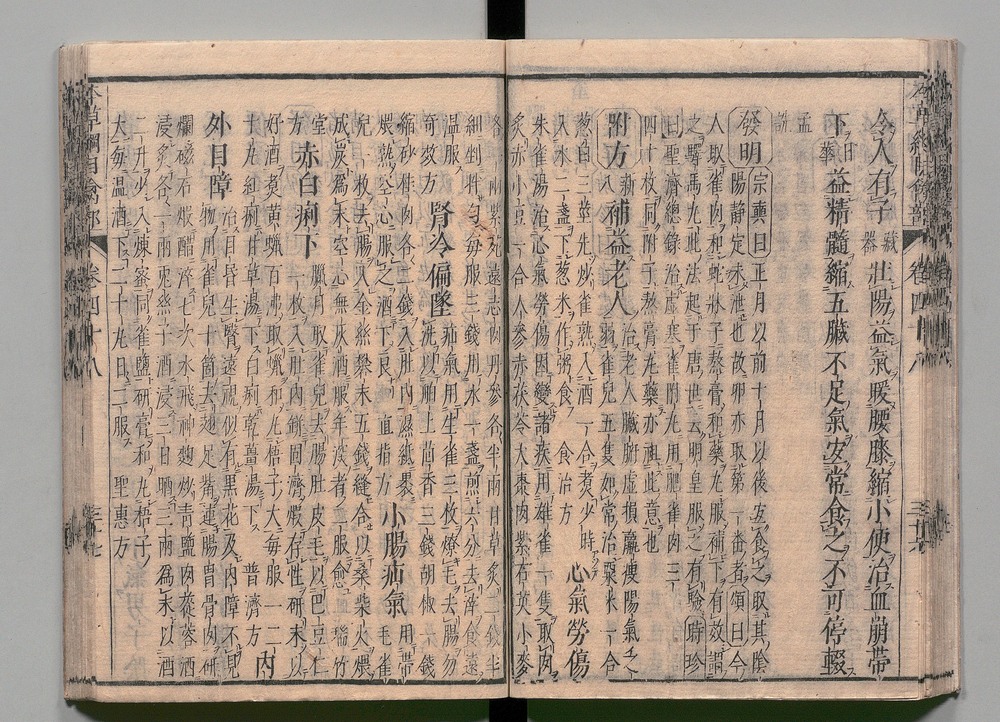 令人有子藏器壯陽益氣暖腰膝縮小便治血崩帶
下日華益精髓縮五臟不足氣宜常食之不可停輟
孟詵
發明宗奭曰正月以前十月以後宜食之取其陰
陽靜定未泄也故卵亦取第一番者頌曰今
人取雀肉和蛇牀子熬膏和藥丸服補下有效謂
之驛馬丸此法起于唐世云明皇服之有驗時珍
曰聖濟總錄治虛寒雀附丸用肥雀肉三
四十枚同附子熬膏丸藥亦祖此意也
附方新八補益老人治老人臟腑虛損羸瘦陽氣乏弱雀兒五隻如常治粟米一合
葱白三莖先炒雀熟入酒一合煮少時入水二盞下葱米作粥食食治方心氣勞傷
朱雀湯治心氣勞傷因變諸疾用雄雀一隻取肉
炙赤小豆一合人參赤茯苓大棗肉紫石英小麥
各一兩紫菀遠志肉丹參各半兩甘草炙二錢半
細剉拌勻每服三錢用水一盞煎六分去滓食遠
溫服奇效方腎冷偏墜疝氣用生雀三枚燎毛去腸勿洗以舶上茴香三錢胡椒一錢
縮砂桂肉各二錢入肚內濕紙裹煨熟空心服之酒下良直指方小腸疝氣用帶毛雀
兒一枚去腸入金絲礬末五錢縫合以桑柴火煨
成炭爲末空心無灰酒服年深者二服愈瑞竹
堂方赤白痢下臘月取雀兒去腸肚皮毛以巴豆仁一枚入肚內瓶固濟煅存性研末以
好酒煮黃蠟百沸取蠟和丸梧子大每服一二
十丸紅痢甘草湯下白痢乾薑湯下普濟方內
外目障治目昏生翳遠視似有黑花及內障不見物用雀兒十箇去翅足嘴連腸胃骨肉研
爛磁石煅醋淬七次水飛神麴炒青鹽肉蓯蓉酒
浸炙各一兩兔絲子酒浸三日晒三兩爲末以酒
二升少入煉蜜同雀鹽研膏和丸梧子
大每溫酒下二十丸日二服聖惠方
卷四十八